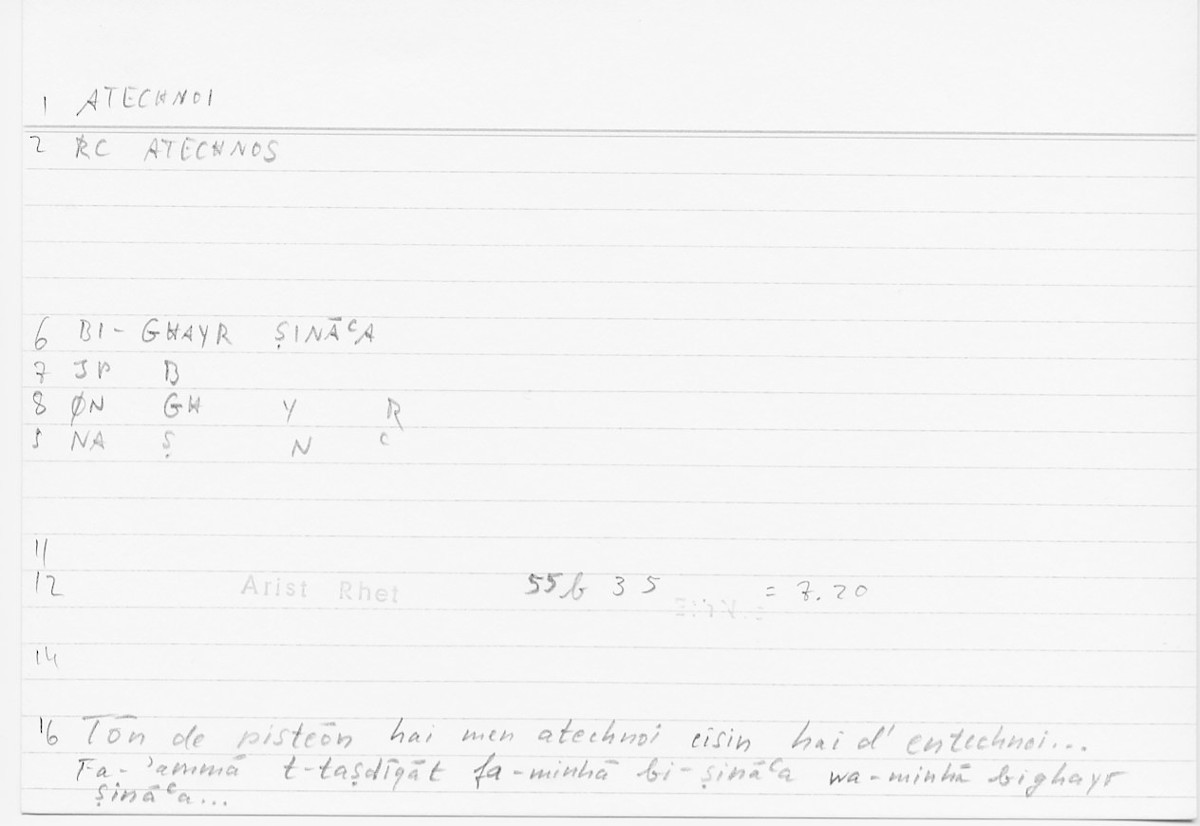 1 ATECHNOI
2 RC ATECHNOS
6 BI- GHAYR ṢINĀʿA
7 JP B
8 ØN GH Y R
9 NA Ṣ N ʿ
11
12 Arist Rhet 55b 35 = 7.20
14
16 Tōn de pisteōn hai men atechnoi eisin hai d' entechnoi...
Fa-ʾammā t-taṣdīqāt fa-minhā bi-ṣināʿa wa-minhā bighayr
ṣināʿa...